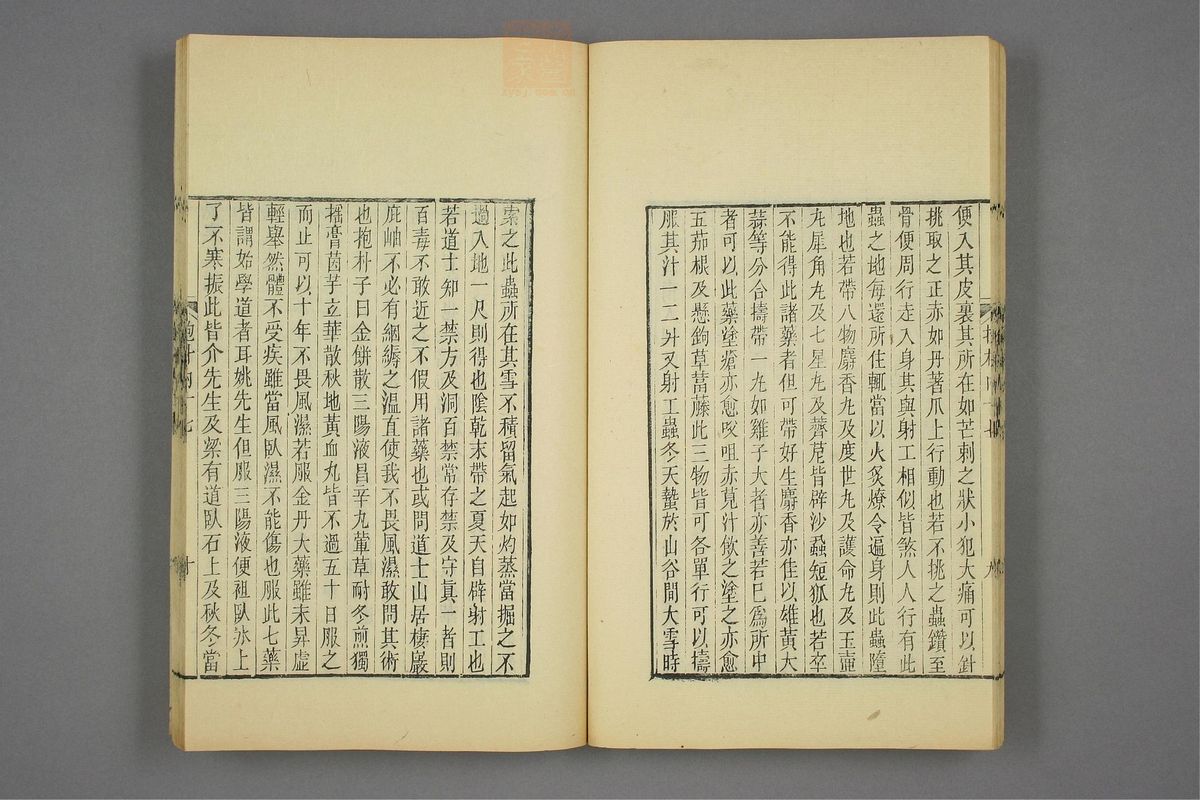 便入其皮裏其所在如芒刺之狀小犯大痛可以針
挑取之正赤如丹著爪上行動也若不挑之蟲鑽至
骨便周行走入身其與射工相似皆煞人人行有此
蟲之地每還所住輒當以火炙燎令遍身則此蟲墮
地也若帶八物麝香丸及度世丸及護命丸及玉壺
丸犀角丸及七星丸及薺苨皆辟沙蝨短狐也若卒
不能得此諸藥者但可帶好生麝香亦佳以雄黃大
蒜等分合擣帶一丸如雞子大者亦善若巳爲所中
者可以此藥塗瘡亦愈㕮咀赤莧汁飲之塗之亦愈
五茄根及懸鉤草葍藤此三物皆可各單行可以擣
服其汁一二升又射工蟲冬天蟄於山谷間大雪時
索之此蟲所在其雪不積留氣起如灼蒸當掘之不
過入地一尺則得也陰乾末帶之夏天自辟射工也
若道士知一禁方及洞百禁常存禁及守真一者則
百毒不敢近之不假用諸藥也或問道士山居棲巖
庇岫不必有絪縟之溫直使我不畏風濕敢問其術
也抱朴子曰金餅散三陽液昌辛丸葷草耐冬煎獨
搖膏茵芋玄華散秋地黃血丸皆不過五十日服之
而止可以十年不畏風濕若服金丹大藥雖未昇虛
輕舉然體不受疾雖當風臥濕不能傷也服此七藥
皆謂始學道者耳姚先生但服三陽液便袒臥冰上
了不寒振此皆介先生及梁有道臥石上及秋冬當
十